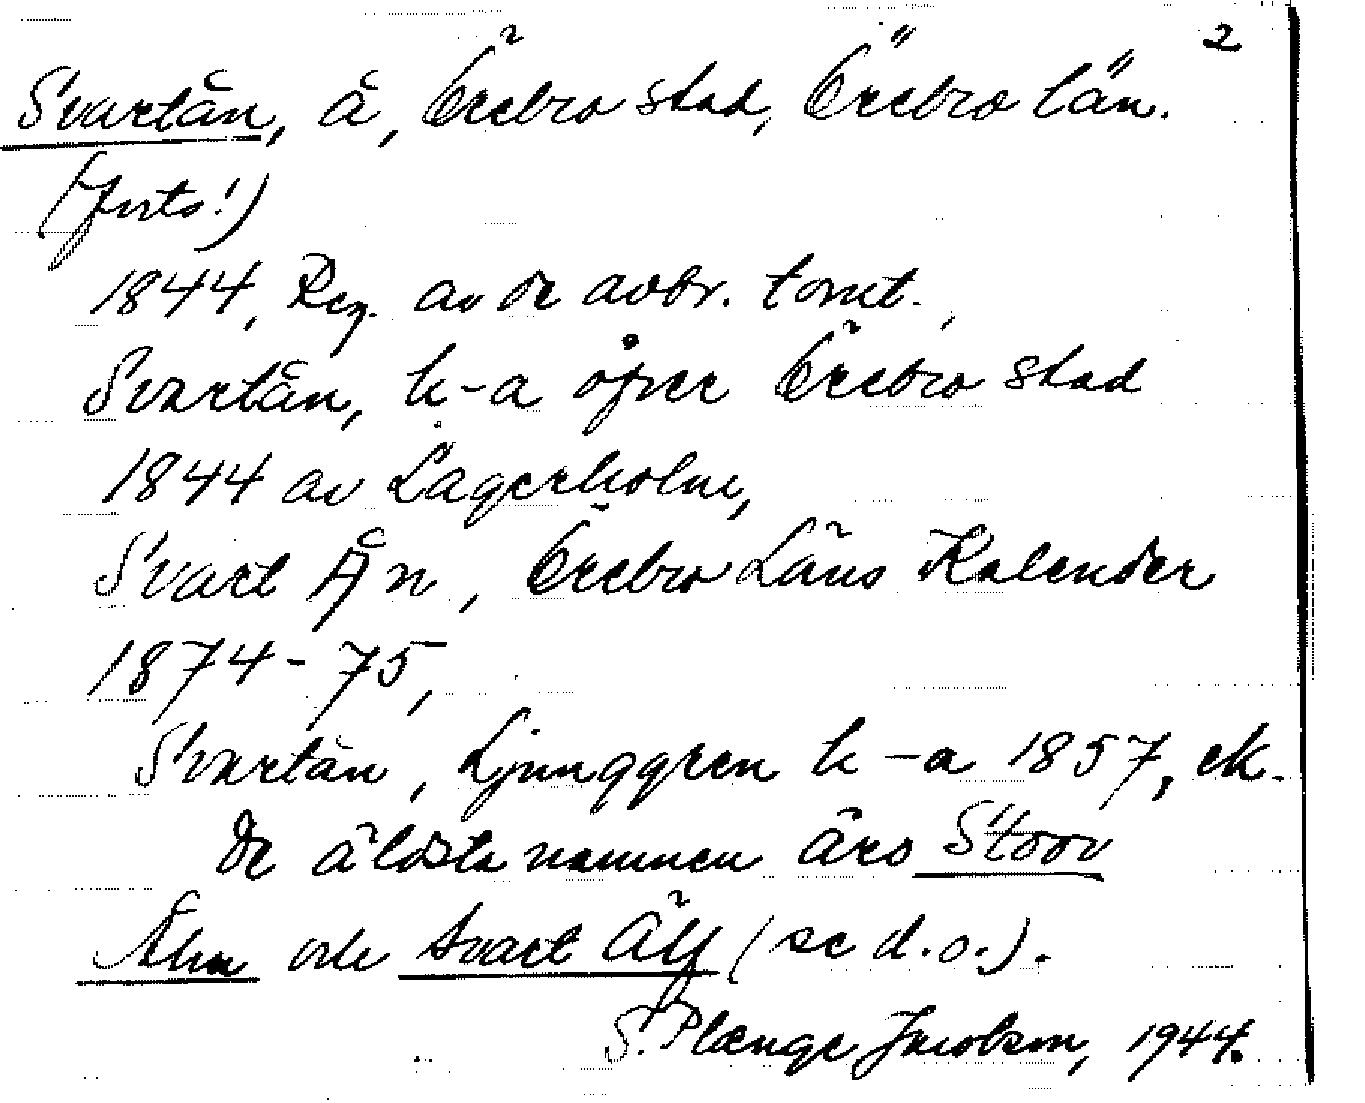 2
Svartån, å, Örebro stad, Örebro län.
(forts!)
1844, Reg. av de avbr. tomt.,
Svartån, k-a öfver Örebro stad
1844 av Lagerholm,
Svart Ån, Örebro Läns Kalender
1874-75,
Svartån, Ljunggren k-a 1857, ek.
De äldsta namnen äro Stoor
Åhn och Svart Älf (se d.o.).
S. Plænge Jacobson, 1944.